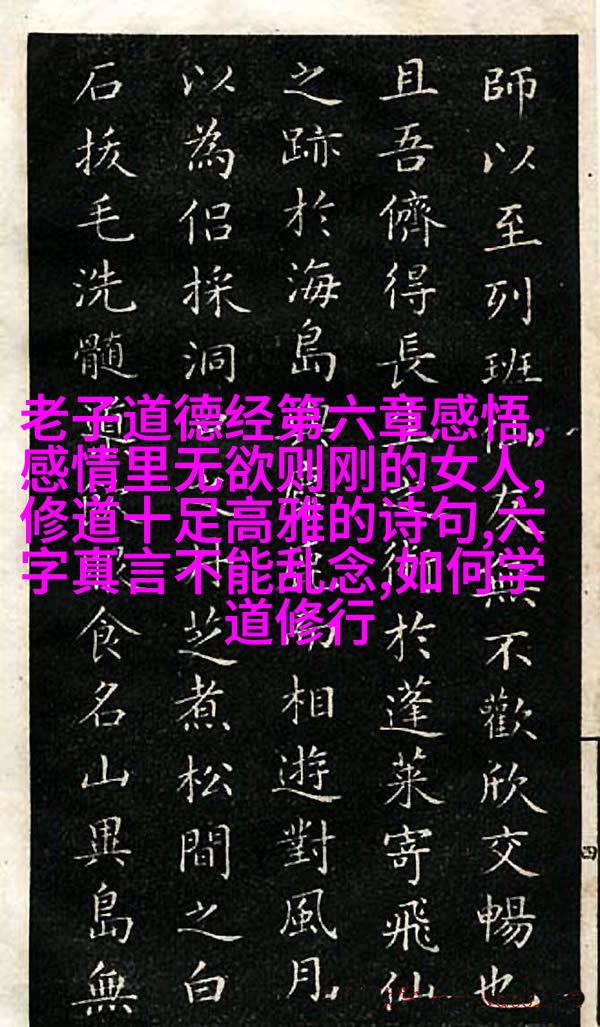 師以至列班友無不歡欣交暢也
且吾儕得長術於蓬萊寄飛仙
之跡於海島相遊對風月
以為侶採洞芝煮松間之白
石拔毛洗髓食名山異島無
老子道德经第六章感悟,
感情里无欲则刚的女人,
修道十足高雅的诗句,六
字真言不能乱念,如何学
道修行